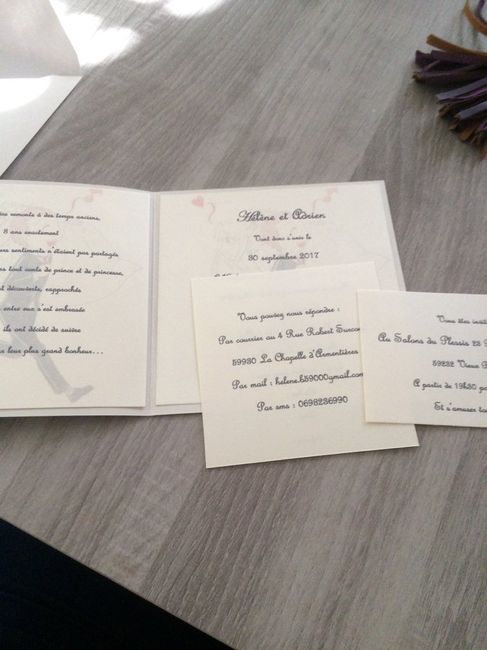 remonte à des temps anciens,
8 ans exactement
sentiments n'étaient pas partagés
tout conte de prince et de princesse,
découverts, rapprochés
entre eux s'est embrasée
ils ont décidé de suivre
leur plus grand bonheur...
Hélène et Adrien
Vont donc s'unir le
30 septembre 2017
Vous pouvez nous répondre :
Par courrier au 4 Rue Robert
59930 La Chapelle d'Armentières
Par mail : helene.b59000@gmail.com
Par sms : 0698236990
Vous êtes
Au Salons du Plessis 23
59232 Vieux
A partir de 19h30
Et s'amuser